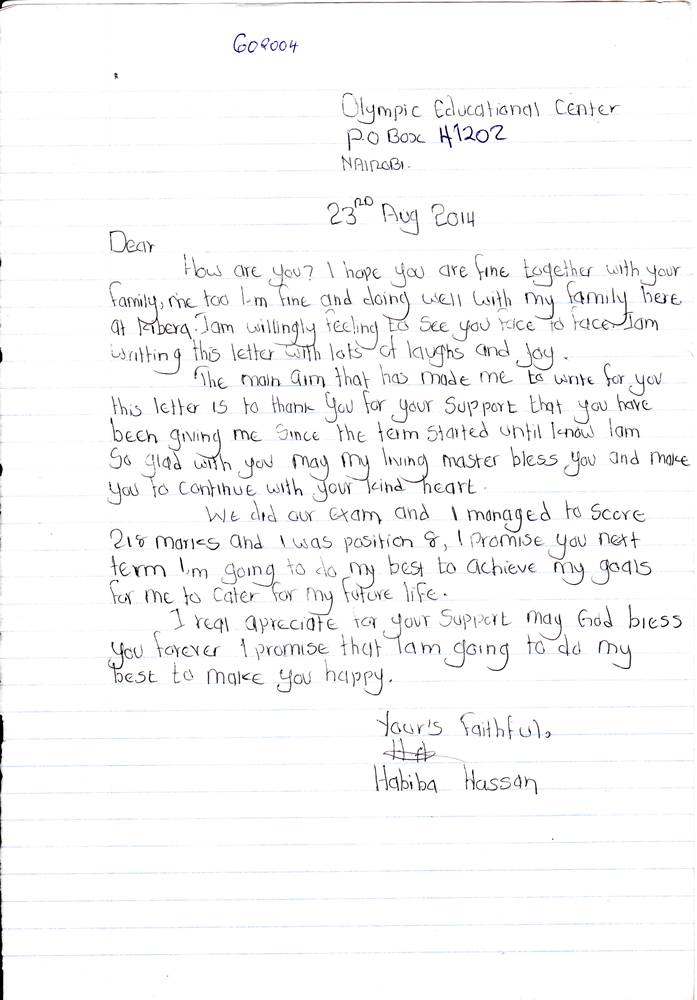 GO9004
Olympic Educational Center
P.O Box 41202
NAIROBI.
23RD Aug 2014
Dear
How are you? I hope you are fine together with your
family, me too I'm fine and doing well with my family here
at Kibera. Iam willingly feeling to see you face to face. Iam
writting this letter with lots of laughs and joy.
The main aim that has made me to write for you
this letter is to thank you for your support that you have
been giving me since the term started until know Iam
so glad with you may my living master bless you and make
you to continue with your kind heart.
We did our exam and I managed to score
218 marks and I was position 8, I promise you next
term I'm going to do my best to achieve my goals
for me to cater for my future life.
I real apreciate for your support may God bless
you forever I promise that Iam going to do my
best to make you happy.
Your's faithful,
HA
Habiba Hassan